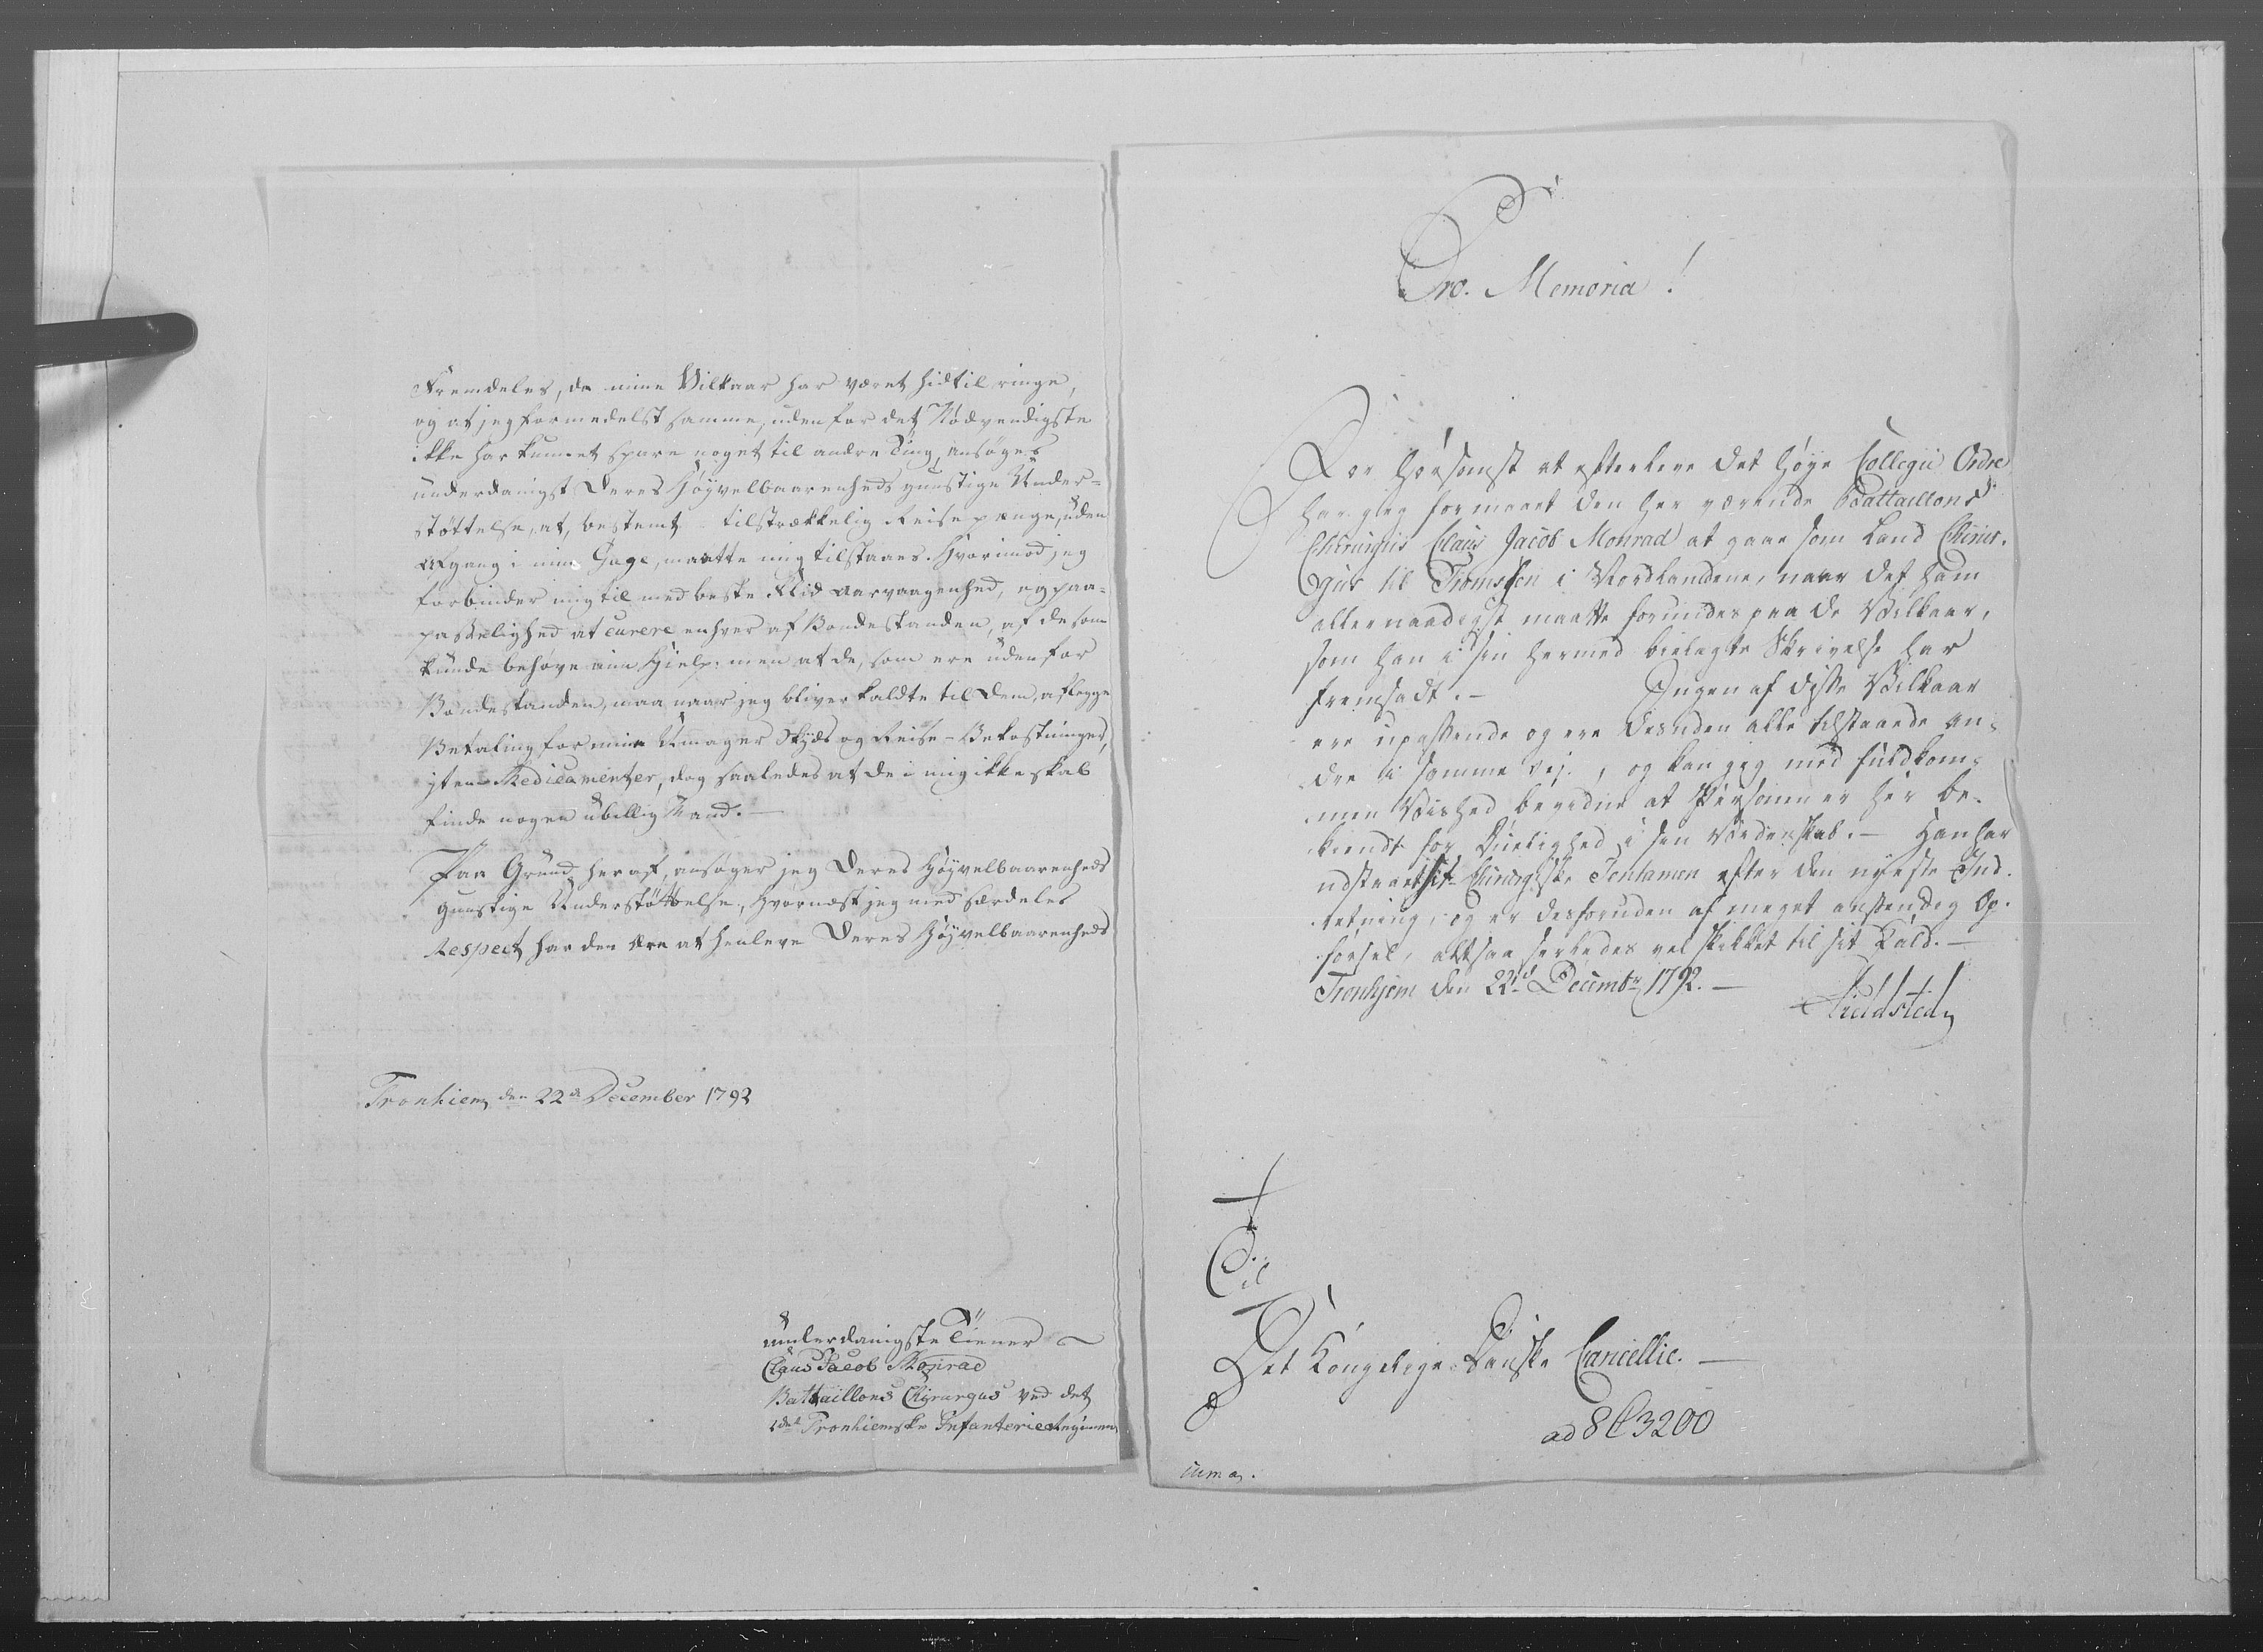 Fremdeles, da mine Vilkaar har været hidtil ringe,
og at jeg formedelst samme, uden for det Nødvendigste
ikke har kunnet spare noget til andre Ting, ansøges
underdanigst Deres Høyvelbaarenheds gunstige Under=
støttelse, at, bestemt tilstrækkelig Reisepenge, uden
Afgang i min Gage, maatte mig tilstaaes. Hvorimod jeg
forbinder mig til med beste Flid Aarvaagenhed, og paa=
passelighed at curere enhver af Bondestanden, af de som
kunde behøve min Hielp; men at de, som ere uden for
Bondestanden, maa naar jeg bliver kaldte til dem, aflegge
Betaling for min Umager Skyds og Reise-Bekostninger,
iten Medicamenter, dog saaledes at de i mig ikke skal
finde nogen ubillig Mand. —
Paa Grund heraf, ansøger jeg Deres Høyvelbaarenheds
gunstige Understøttelse, hvornæst jeg med særdeles
Respect har den Ære at henleve Deres Høyvelbaarenheds
Tronhiem den 22de December 1792
underdanigste Tiener
Claus Jacob Monrad
Battaillons Chirurgus ved det
Tronhiemske Infanterie Regimen
Pro. Memoria!
For hørsomst at efterleve det høye Collegii Ordre
har jeg formaaet den her værende Battaillons
Chirurgus Claus Jacob Monrad at gaae som Land Chirur.
gus til Tromssen i Nordlandene, naar det ham
allernaadigst maatte forundes paa de Vilkaar,
som han i sin hermed bielagte Skrivelse har
fremsadt. — Ingen af disse Vilkaar
ere upassende og ere desuden alle tilstaaede an=
dre i samme vej, og kan jeg med fuldkom=
men Vished bevidne at Personen er her be=
kiendt for Duelighed i sin Videnskab. — Han har
udstaaet sit Chirurgiske Tentamen efter den nyeste Ind=
retning, og er desforuden af meget anstendig Op=
førsel, altsaa serledes vel skikket til sit Kald. —
Tronhjem den 22d Decembr 1792. —
Hieldsted
Til
Det Kongelige Danske Cancellie. —
ad 8C3200